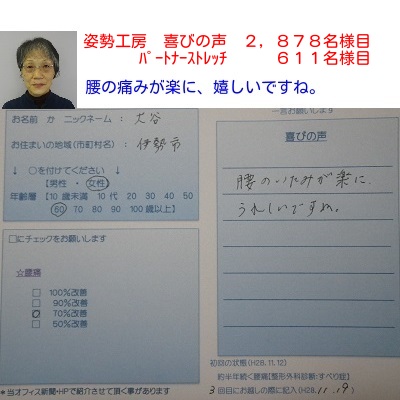 姿勢工房 喜びの声 2,878名様目
パートナーストレッチ 611名様目
腰の痛みが楽に、嬉しいですね。
お名前 か ニックネーム: 大谷
お住まいの地域(市町村名): 伊勢市
↓ ○を付けてください ↓
【男性 ・ 女性】
年齢層【10歳未満 10代 20 30 40 50
60 70 80 90 100歳以上】
□にチェックをお願いします
☆腰痛
□ 100%改善
□ 90%改善
☑ 70%改善
□ 50%改善
*当オフィス新聞・HPで紹介させて頂く事があります
一言お願いします
喜びの声
腰のいたみが楽に、
うれしいですね。
初回の状態(H28.11.12)
約半年続く腰痛【整形外科診断:すべり症】
3回目にお越しの際に記入(H28.11.19)